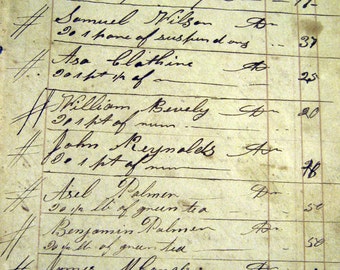 Samuel Wilson Dr
To 1 pare of suspendors 37
Asa Clothine Dr
To 1 pt of 25
William Bevely Dr 20
To 1 pt of rum
John Reynolds Dr
To 1 pt of rum 18
Asel Palmer Dr
To ¼ lb of green tea 50
Benjamin Palmer Dr
To ¼ lb of green tea 50